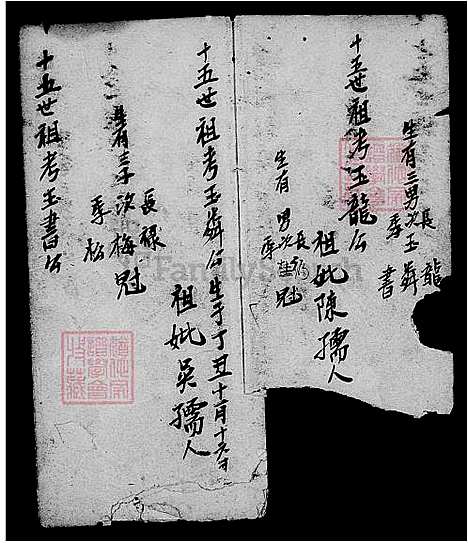 生有三男次玉舜
長 龍
季 書
十五世祖考玉龍公
祖妣陳孺人
生有 男次 冠
長
季
十五世祖考玉舜公生于丁丑十一月十六寸
祖妣吳孺人
生有三子次梅冠
長祿
季松
十五世祖考玉書公
FamilySearch